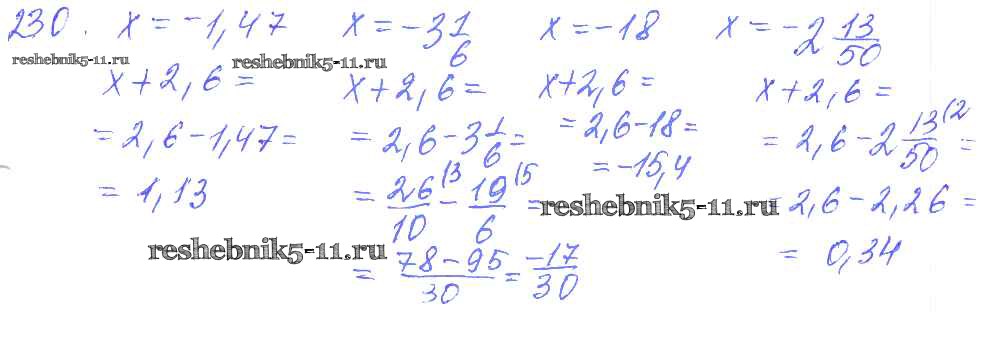 230. x = -1,47 x = -3 1/6 x = -18 x = -2 13/50
reshebnik5-11.ru reshebnik5-11.ru
x + 2,6 = x + 2,6 = x + 2,6 = x + 2,6 =
= 2,6 - 1,47 = = 2,6 - 3 1/6 = = 2,6 - 18 = = 2,6 - 2 13/50 (2 =
= 1,13 = 26/10 (3 - 19/6 (5 = = -15,4 = 2,6 - 2,26 =
reshebnik5-11.ru
reshebnik5-11.ru
= 78 - 95/30 = -17/30 = 0,34